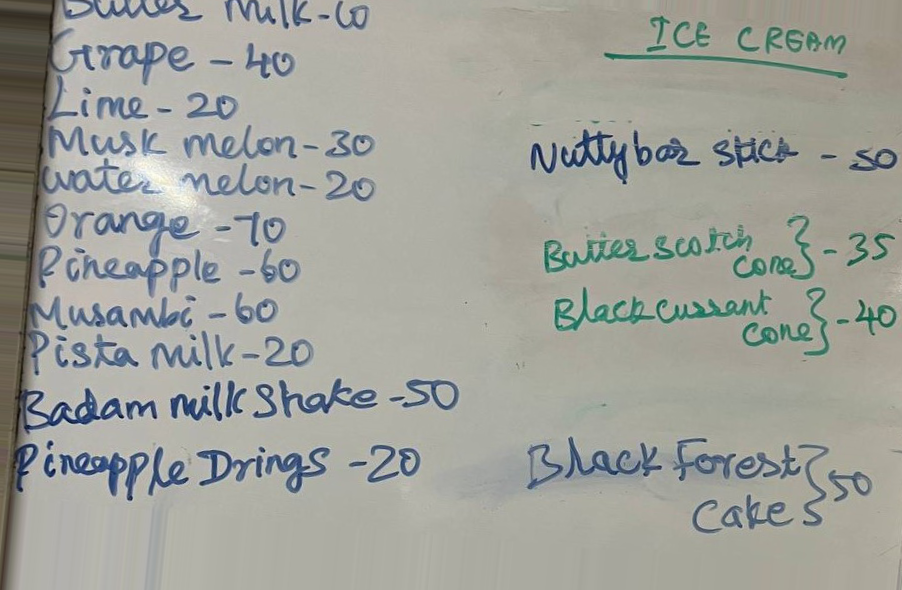 Butter Milk-60
Grape - 40
Lime - 20
Musk melon-30
water melon-20
Orange -70
Pineapple -60
Musambi -60
Pista Milk-20
Badam milk Shake -50
Pineapple Drings -20
ICE CREAM
Nuttybar stick - 50
Butter scotch
cone} - 35
Blackcurrant
cone} - 40
Black Forest
Cake} 50